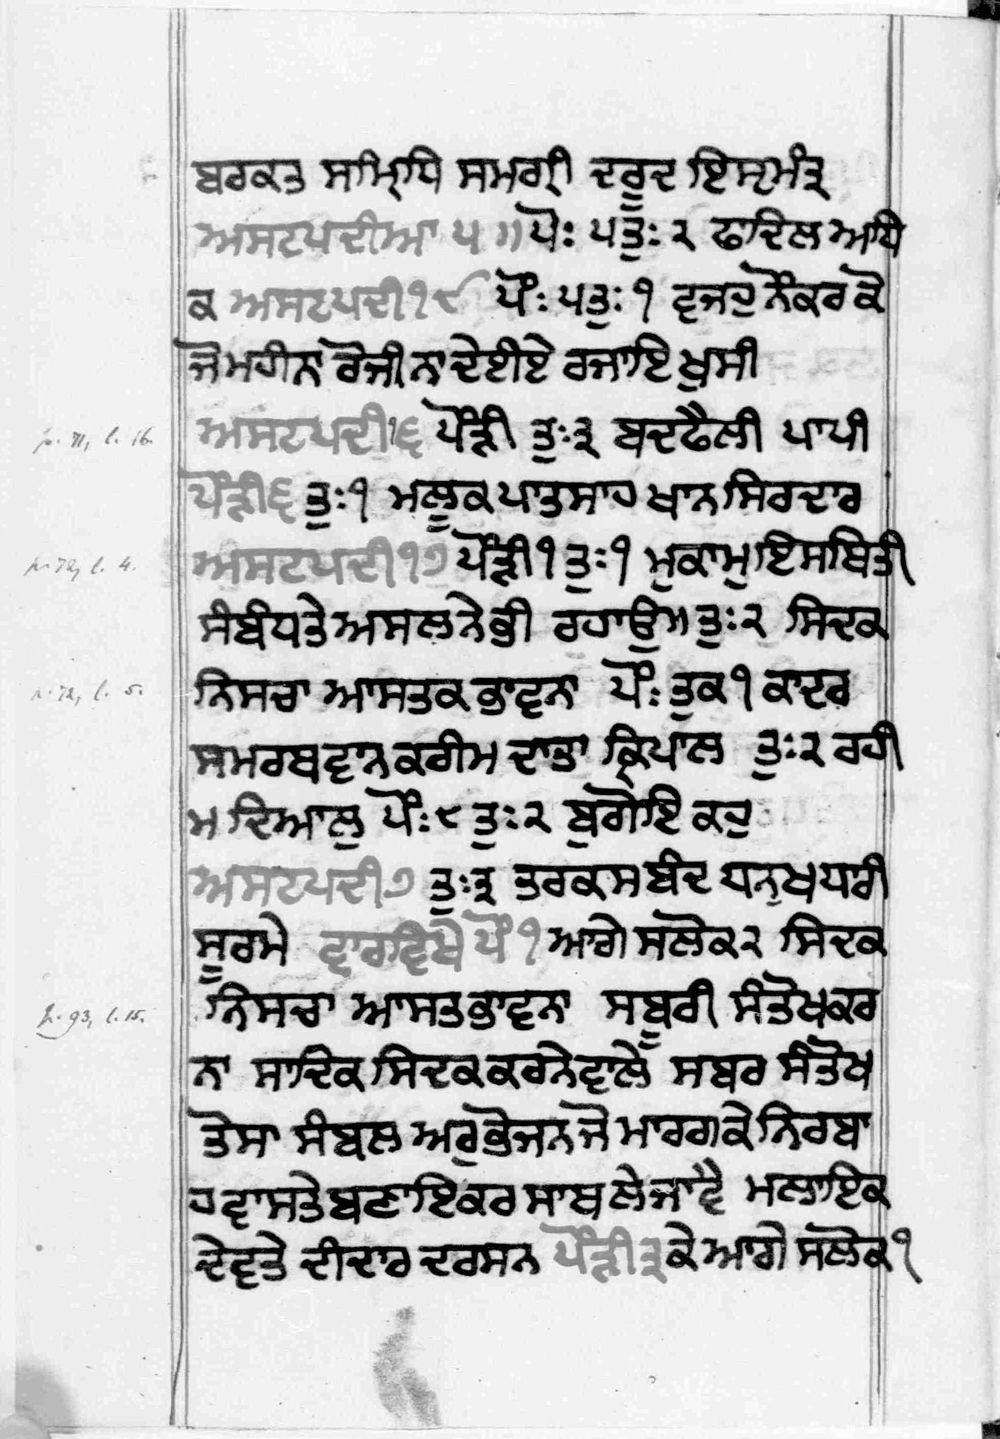 ਬਰਕਤ ਸਮ੍ਰਿਧਿ ਸਮਗ੍ਰੀ ਦਰੂਦ ਇਸ੍ਟਮੰਤ੍ਰ
ਅਸਟਪਦੀਆ ੫ ॥ ਪੌ: ੫ ਤੁ: ੨ ਫਾਦਿਲ ਅਧਿ
ਕ ਅਸਟਪਦੀ ੧੯ ਪੌ: ੫ ਤੁ: ੧ ਵ੍ਵਜਹੁ ਨੌਕਰ ਕੋ
ਜੋ ਮਹੀਨਾ ਰੋਜੀਨਾ ਦੇਈਏ ਰਜਾਇ ਖੁਸੀ
p. 71, l. 16. ਅਸਟਪਦੀ ੧੬ ਪੌੜੀ ਤੁ: ੩ ਬਦਫੈਲੀ ਪਾਪੀ
ਪੌੜੀ ੬ ਤੁ: ੧ ਮਲੂਕ ਪਾਤਸਾਹ ਖਾਨ ਸਿਰਦਾਰ
p. 72, l. 4. ਅਸਟਪਦੀ ੧੭ ਪੌੜੀ ੧ ਤੁ: ੧ ਮੁਕਾਮੁ ਇਸਥਿਤੀ
ਸੰਬੰਧ ਤੇ ਅਸਲ ਨੇ ਭੀ ਰਹਾਉ ॥ ਤੁ: ੨ ਸਿਦਕ
p. 72, l. 5. ਨਿਸਚਾ ਆਸਤਕ ਭਾਵਨਾ ਪੌ: ਤੁਕ ੧ ਕਾਦਰ
ਸਮਰਥਵਾਨ ਕਰੀਮ ਦਾਤਾ ਕ੍ਰਿਪਾਲ ਤੁ: ੨ ਰਹੀ
ਮ ਦਿਆਲੁ ਪੌ: ੯ ਤੁ: ੨ ਬੁਗੋਇ ਕਹੁ
ਅਸਟਪਦੀ ੭ ਤੁ: ੩ ਤਰਕਸਬੰਦ ਧਨੁਖਧਾਰੀ
ਸੂਰਮੇ ਵਾਰ ਵਿਖੇ ਪੌ ੧ ਆਗੇ ਸਲੋਕ ੨ ਸਿਦਕ
p. 93, l. 15. ਨਿਸਚਾ ਆਸਤ ਭਾਵਨਾ ਸਬੂਰੀ ਸੰਤੋਖ ਕਰ
ਨਾ ਸਾਦਿਕ ਸਿਦਕ ਕਰਨੇਵਾਲੇ ਸਬਰ ਸੰਤੋਖ
ਤੋਸਾ ਸੰਬਲ ਅਰੁ ਭੋਜਨ ਜੋ ਮਾਰਗ ਕੇ ਨਿਰਬਾ
ਹ ਵਾਸਤੇ ਬਣਾਇਕਰ ਸਾਥ ਲੇ ਜਾਵੈ ਮਲਾਇਕ
ਦੇਵਤੇ ਦੀਦਾਰ ਦਰਸਨ ਪੌੜੀ ੩ ਕੇ ਆਗੇ ਸਲੋਕ ੧